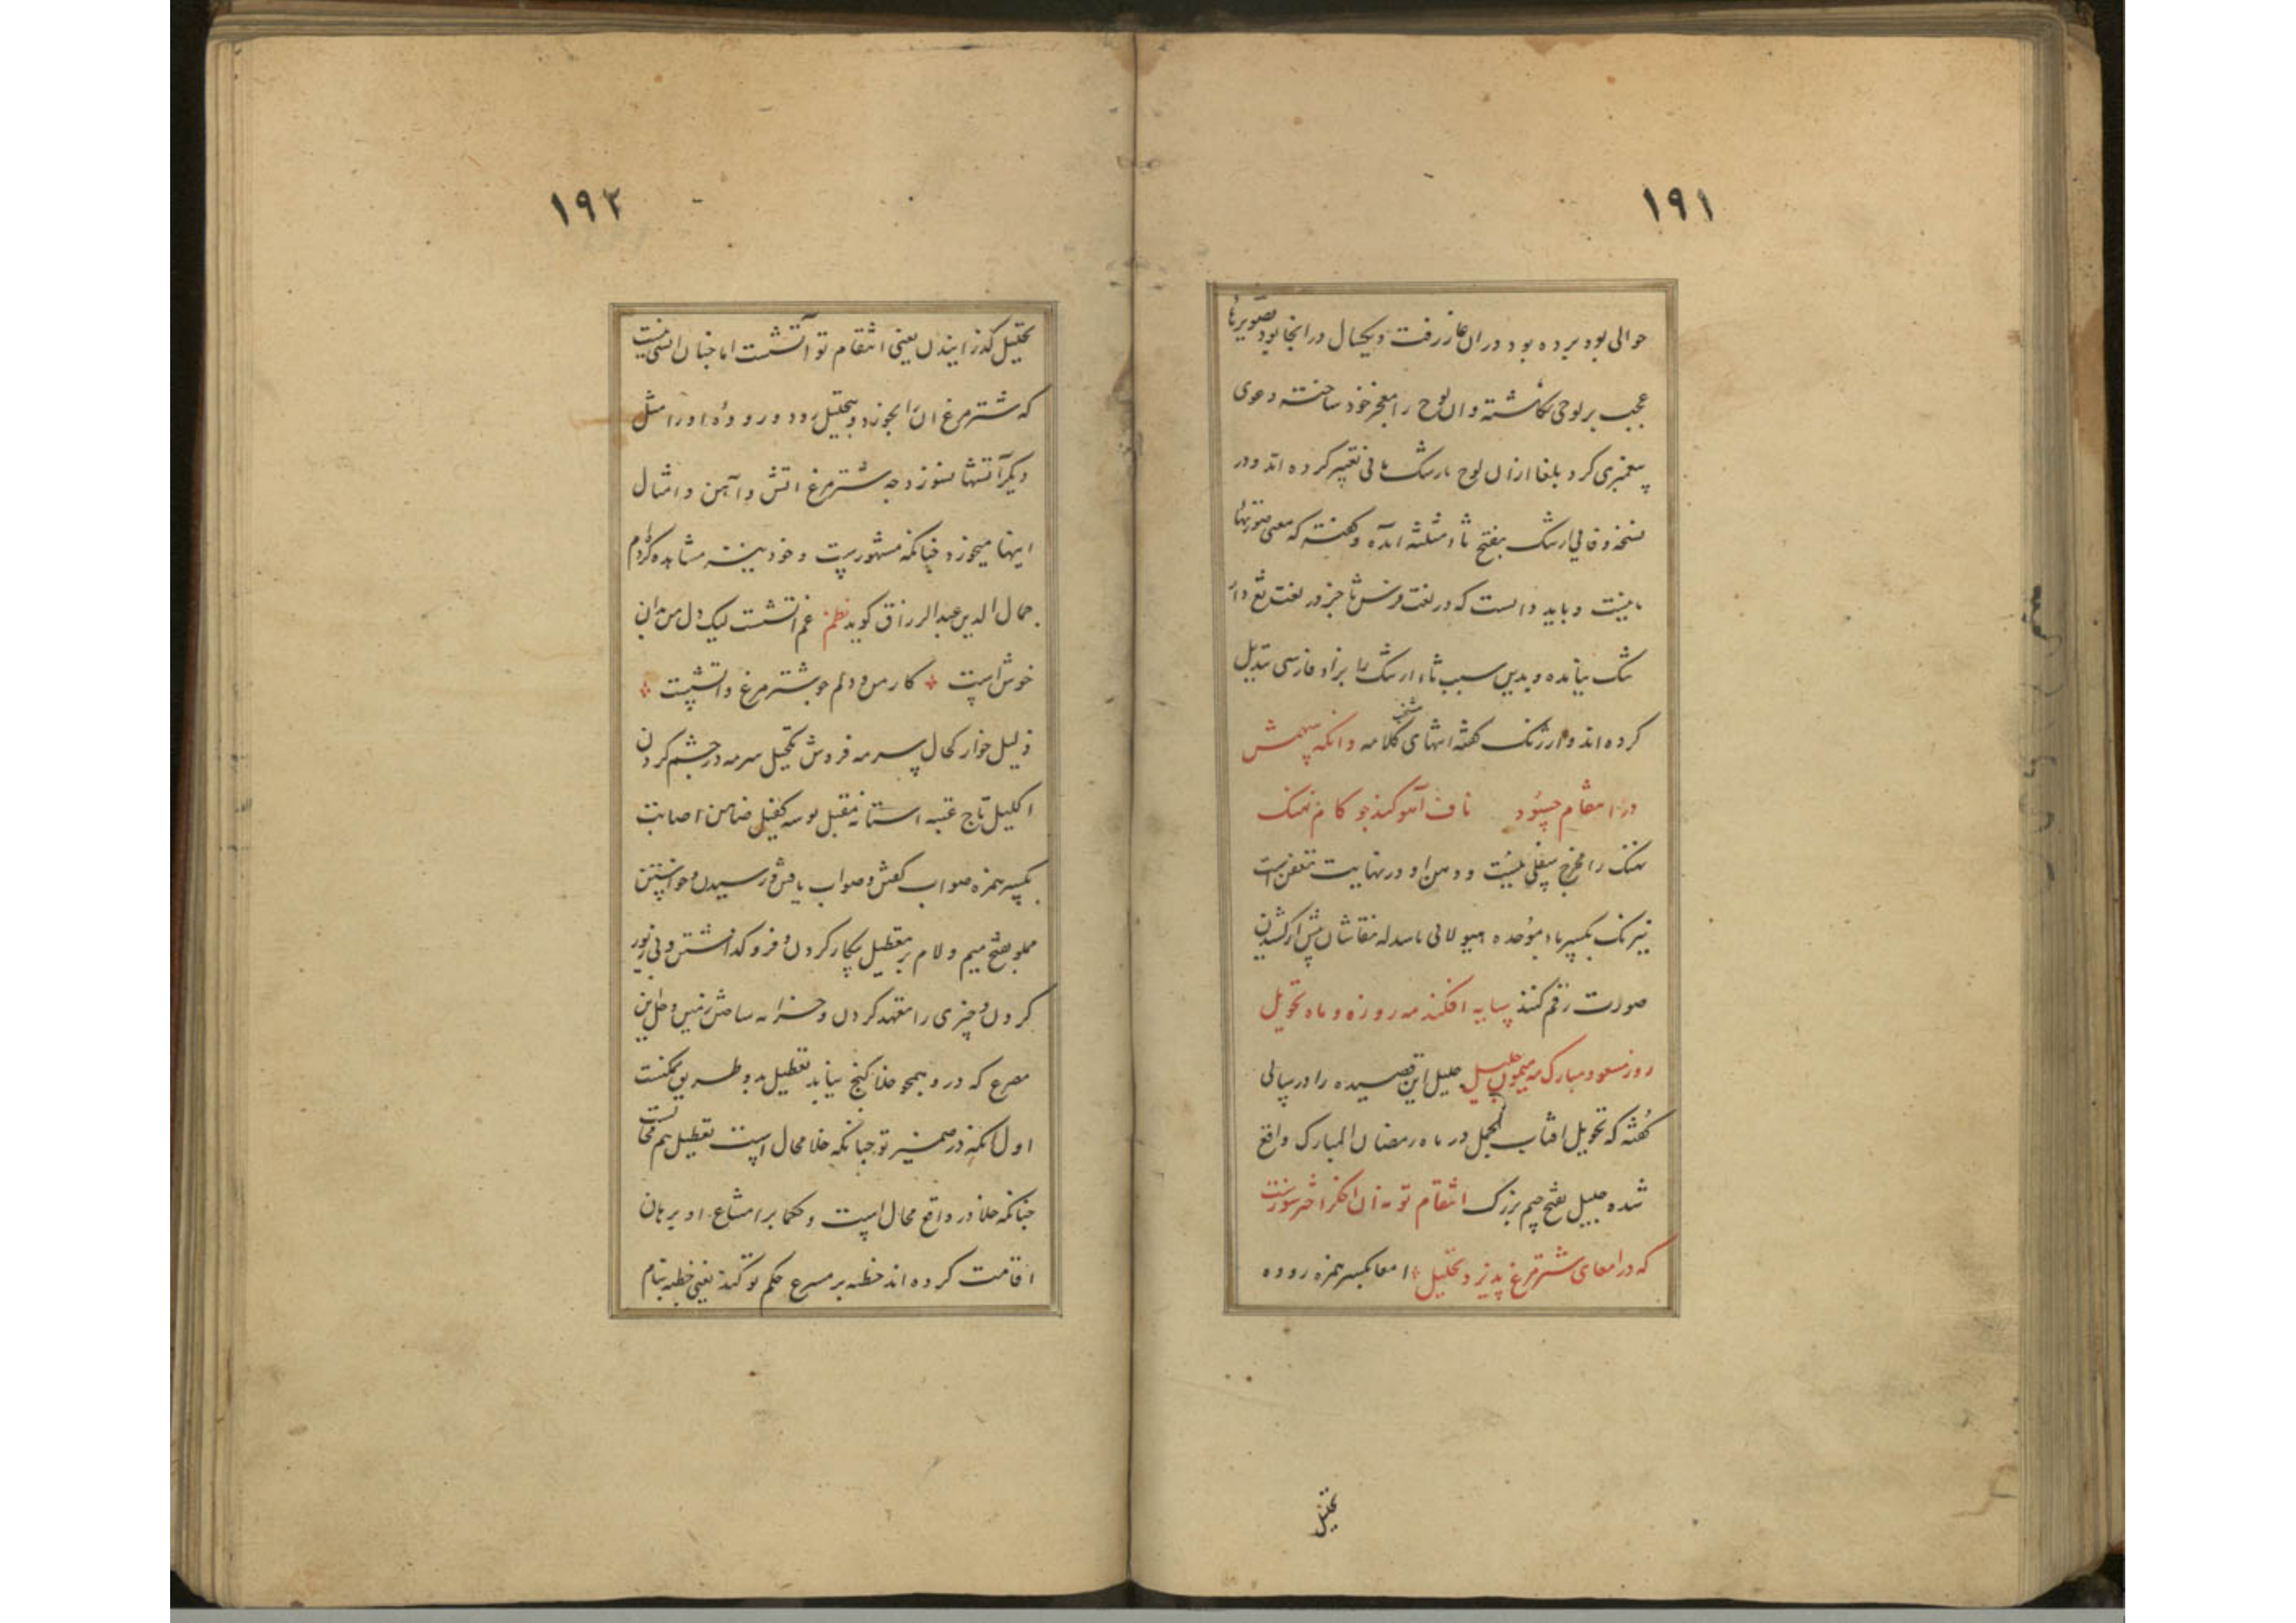 ۱۹۱
حوالی بود برده بود در ان غار رفت و یکسال در انجا بود و تصویرها
عجیب بر لوحی نگاشته و ان لوح را معجز خود ساخته دعوی
پیغمبری کرد بلغا از ان لوح بارثنک مانی تعبیر کرده اند و در
نسخهٔ وفائی ارثنک بفتح ثاء مثلثه آمده و گفته که معنی صورتهاء
مانیست و باید دانست که در لغت فرس ثا جز در لغت ثغ و ار
ثنک نیامده و بدین سبب ثاء ارثنک را بزاء فارسی تبدیل
کرده اند و ارژنک گفته انتهای کلامه وانکه پیشش
در انتقام حسود ناف آهو کند چو کام نهنک
نهنک را مخرج سفلی نیست و دهن او در نهایت تعفن است
نیرنک بکسر باء موحده هیولائی باشد که نقاشان پیش از کشیدن
صورت رقم کنند سایه افکند مه روزه و ماه تحویل
روز مسعود مبارک مه میمون جلیل جلیل این قصیده را در سالی
گفته که تحویل افتاب بحمل در ماه رمضان المبارک واقع
شده جلیل بفتح جیم بزرک انتقام تو نه ان اخکر اخترسوزست
که در امعای شترمرغ پذیرد تحلیل امعا بکسر همزه روده
تحلیل
۱۹۲
تحلیل گذرانیدن یعنی انتقام تو آتشست اما چنان اتشی نیست
که شترمرغ ان را بخورد و بتحلیل رود و رودهٔ او را مثل
دیگر آتشها نسوزد چه شترمرغ اتش و آهن و امثال
اینها میخورد چنانکه مشهورست و خود بینه مشاهده کرده‌ام
جمال الدین عبدالرزاق کوید نظم غم اتشست لیک دل من بدان
خوش است کار من و دلم چو شترمرغ و اتشست
ذلیل خوار کحال سرمه فروش تکحیل سرمه در چشم کردن
اکلیل تاج عتبه استانه مقبل بوسه کفیل ضامن اصابت
بکسر همزه صواب گفتن و صواب یافتن و رسیدن و خواستن
مملو بفتح میم و لام پر تعطیل بیکار کردن و فرو گذاشتن و بی زیور
کردن و چیزی را تعهد کردن و خزانه ساختن زمین و حل این
مصرع که در و همچو خلا کنج نیابد تعطیل بدو طریق ممکنست
اول انکه در ضمیر تو چنانکه خلا محال است تعطیل هم محالست
چنانکه خلا در واقع محال است و حکما بر امتناع او برهان
اقامت کرده اند خطبه بر مسرع حکم تو کند یعنی خطبه بنام